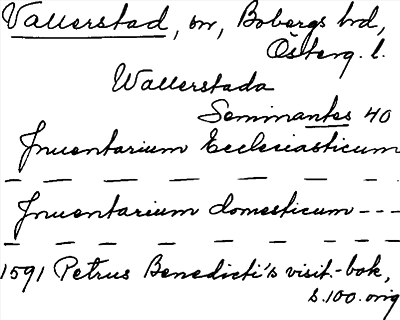 Vallerstad, sn, Bobergs hd,
Österg. l.
Wallerstada
Seminantes 40
Inuentarium Ecclesiasticum
— — — — — —
Inuentarium domesticum ---
— — — — — — —
1591 Petrus Benedicti's visit.-bok,
s. 100. orig